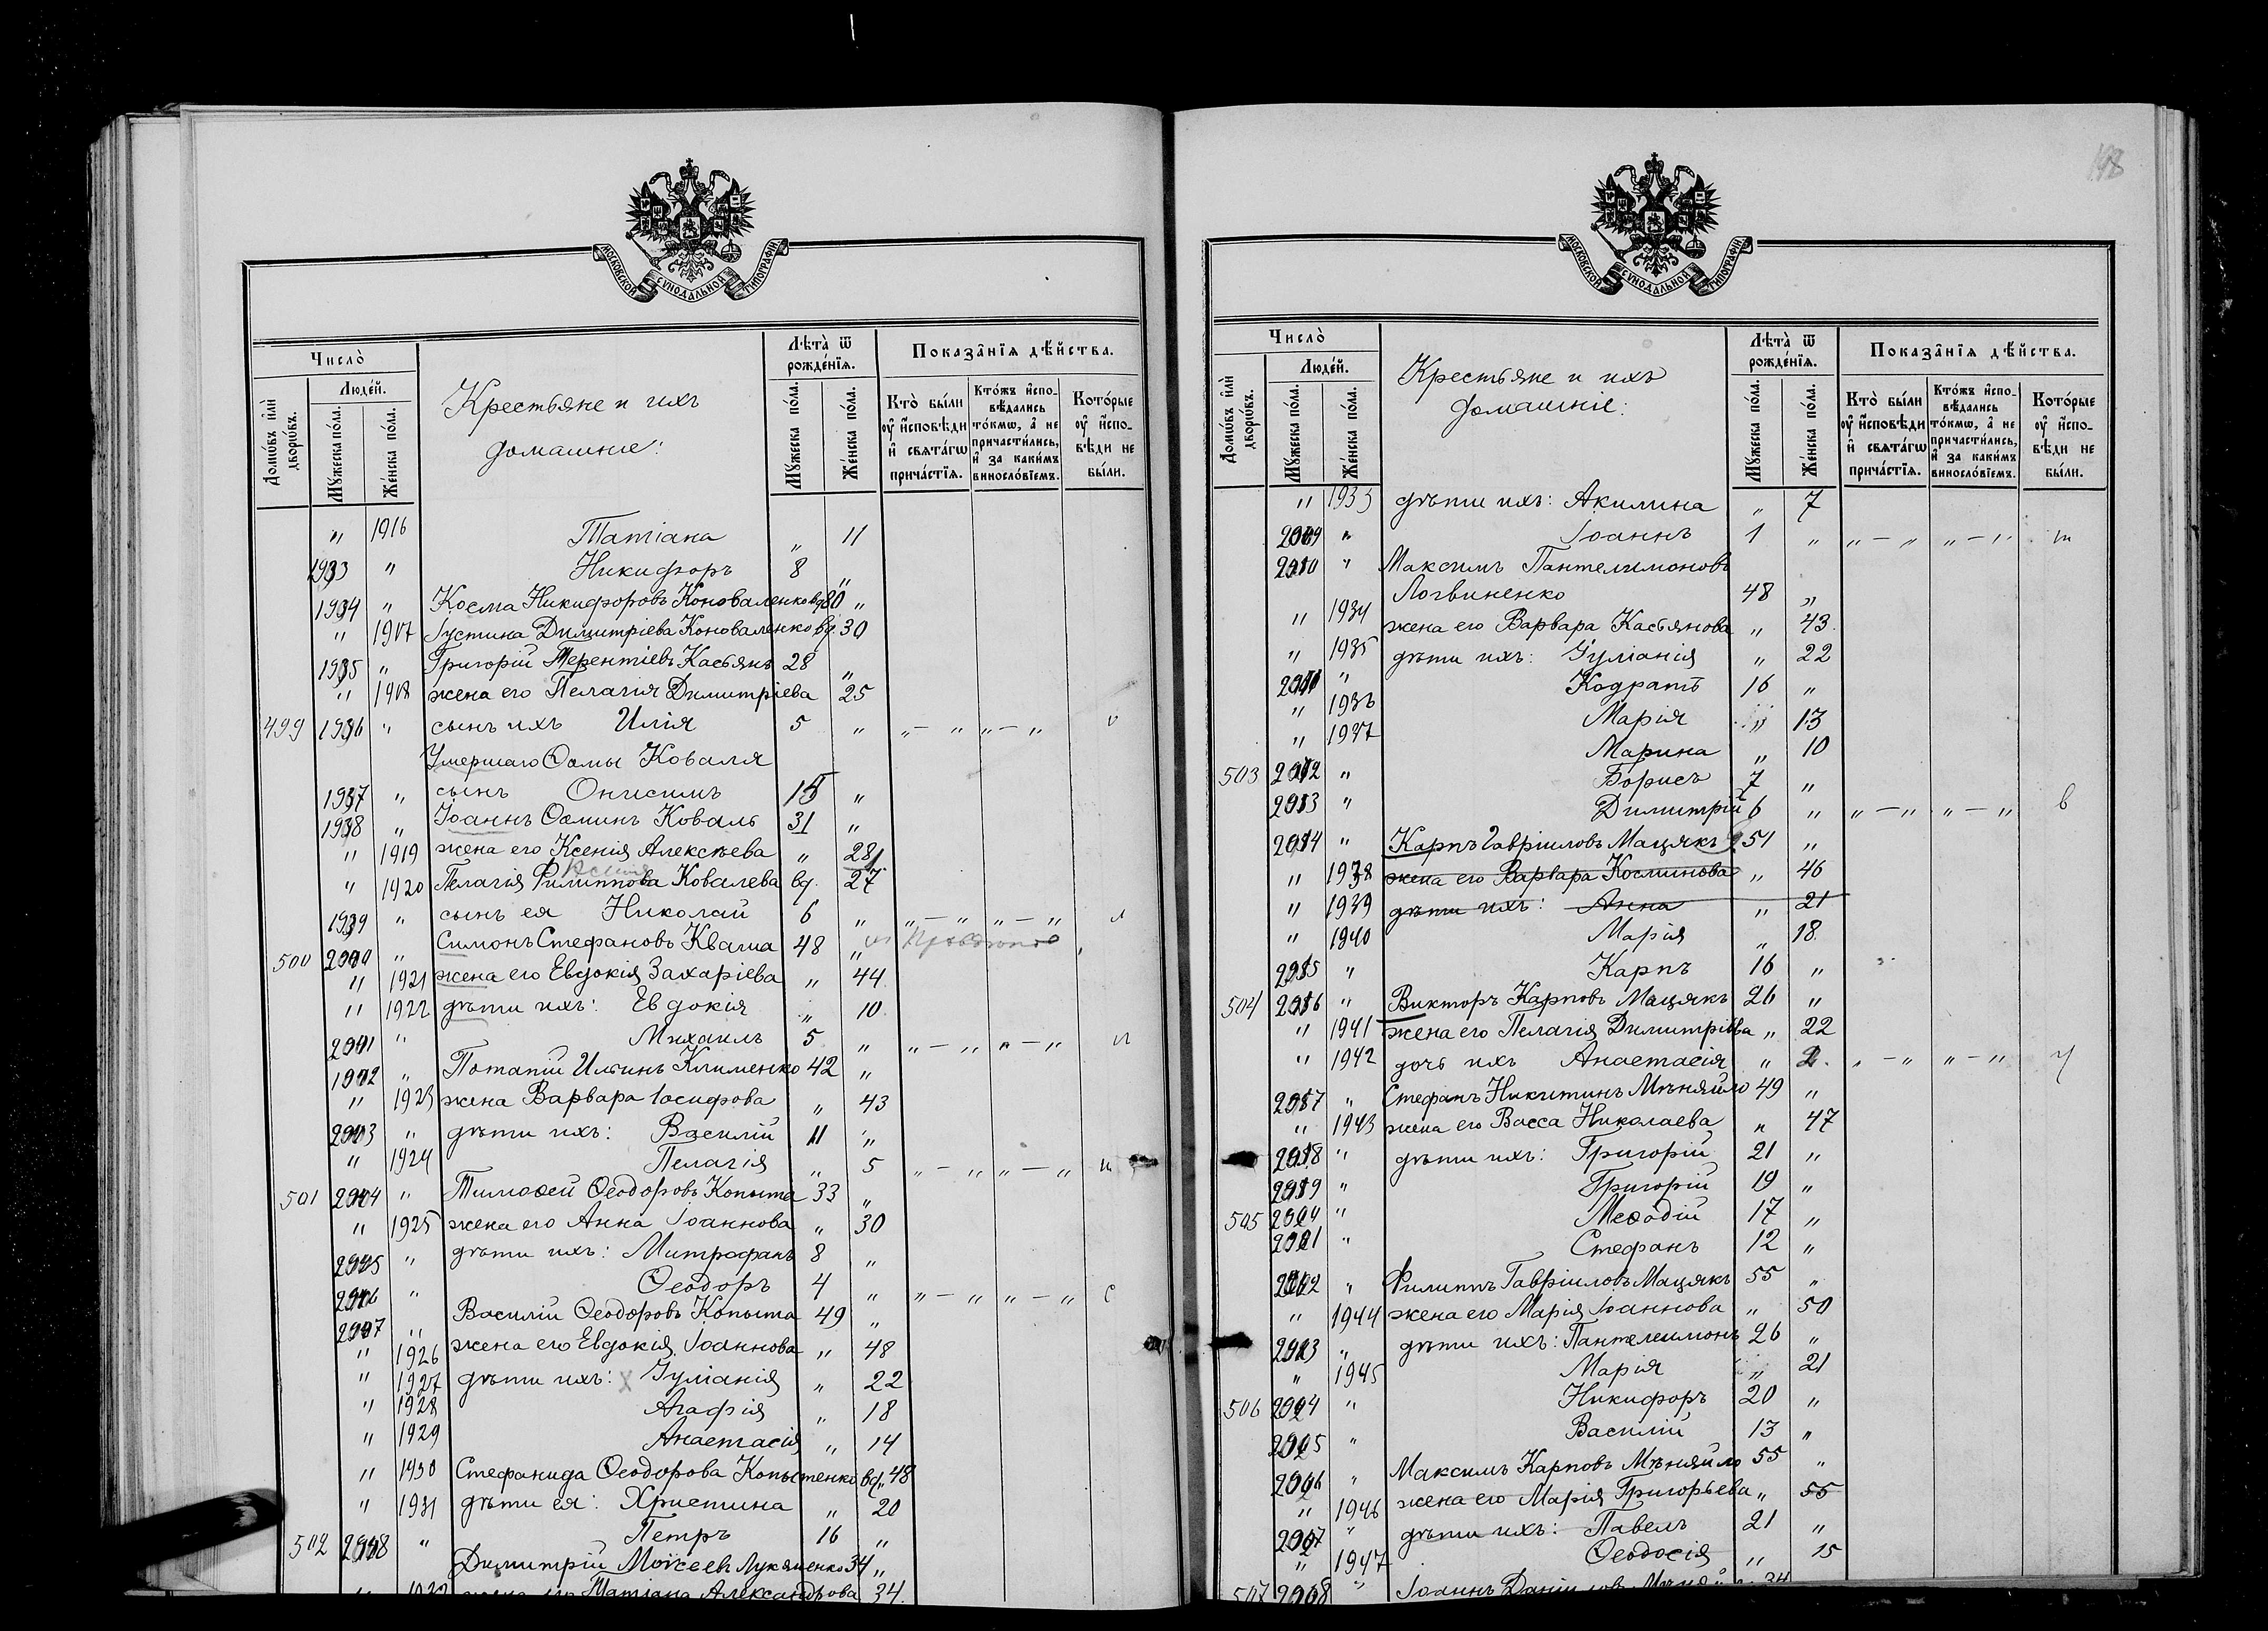 198
МОСКОВСКОЙ СѴНОДАЛЬНОЙ ТИПОГРАФІИ
Число̀
Людей.
Домѡвъ и҆лѝ дворѡ́въ.
Мꙋжеска по́ла.
Же́нска по́ла.
Крестьяне и ихъ
домашніе:
Лѣта̀ ѿ рожде́нїѧ.
Мꙋжеска по́ла.
Же́нска по́ла.
Показа̑нїѧ дѣ́йства.
Кто̀ бы́ли оу҆ и҆́сповѣди и҆ свѧта́гѡ прича́стїѧ.
Кто́жъ и҆спо-вѣ́дались то́кмѡ, а҆ не причасти́лись, и҆ за каки́мъ виносло́вїемъ.
Кото́рые оу҆ и҆́спо-вѣди не бы́ли.
" 1916 Татіана " 11
1933 " Никифоръ 8 "
1934 " Косма Никифоровъ Коноваленко вд 80 "
" 1917 Іустина Димитріева Коноваленко вд. 30
1935 " Григорій Терентіевъ Касьянъ 28 "
" 1918 жена его Пелагія Димитріева 25
499 1936 " сынъ ихъ Илія 5 " " — " " — "
Умершаго Ѳомы Коваля
1937 " сынъ Онисимъ 15 "
1938 " Іоаннъ Ѳоминъ Коваль 31 "
" 1919 жена его Ксенія Алексѣева " 28
" 1920 Пелагія Филиппова Ковалева вд. 27
1939 " сынъ ея Николай 6 " " — " " — "
500 " Симонъ Стефановъ Кваша 48 "
" 1921 жена его Евдокія Захаріева " 44
" 1922 дѣти ихъ: Евдокія " 10
" Михаилъ 5 " " — " " — "
" Потапій Ильинъ Клименко 42 "
" 1923 жена Варвара Іосифова " 43
" дѣти ихъ: Василій 11 "
" 1924 Пелагія " 5 " — " " — "
501 " Тимоѳей Ѳеодоровъ Копыта 33 "
" 1925 жена его Анна Іоаннова " 30
" дѣти ихъ: Митрофанъ 8 "
" Ѳеодоръ 4 " " — " " — " с
" Василій Ѳеодоровъ Копыта 49 "
" 1926 жена его Евдокія Іоаннова " 48
" 1927 дѣти ихъ: Іуліанія " 22
" 1928 Агафія " 18
" 1929 Анастасія " 14
" 1930 Стефанида Ѳеодорова Копытенко вд. 48
" 1931 дѣти ея: Христина " 20
502 " Петръ 16 "
Димитрій Моѵсеевъ Лукяненко 34 "
жена его Татіана Александрова 34.
МОСКОВСКОЙ СѴНОДАЛЬНОЙ ТИПОГРАФІИ
Число̀
Людей.
Домѡвъ и҆лѝ дворѡ́въ.
Мꙋжеска по́ла.
Же́нска по́ла.
Крестьяне и ихъ
домашніе:
Лѣта̀ ѿ рожде́нїѧ.
Мꙋжеска по́ла.
Же́нска по́ла.
Показа̑нїѧ дѣ́йства.
Кто̀ бы́ли оу҆ и҆́сповѣди и҆ свѧта́гѡ прича́стїѧ.
Кто́жъ и҆спо-вѣ́дались то́кмѡ, а҆ не причасти́лись, и҆ за каки́мъ виносло́вїемъ.
Кото́рые оу҆ и҆́спо-вѣди не бы́ли.
" 1933 дѣти ихъ: Акилина " 7
" Іоаннъ 1 " " — " " — "
" Максимъ Пантелимоновъ
Логвиненко 48 "
" 1934 жена его Варвара Касьянова " 43
" 1935 дѣти ихъ: Іуліанія " 22
" Кодратъ 16 "
" 1936 Марія " 13
" 1937 Марина " 10
503 " Борисъ 7 "
" Димитрій 6 " " — " " — " в
" Карпъ Гавріиловъ Мацякъ 51 "
" 1938 жена его Варвара Косминова " 46
" 1939 дѣти ихъ: Анна " 21
" 1940 Марія " 18.
" Карпъ 16 "
504 " Викторъ Карповъ Мацякъ 26 "
" 1941 жена его Пелагія Димитріева " 22
" 1942 дочь ихъ Анастасія " 2. " — " " — "
" Стефанъ Никитинъ Мѣняйло 49 "
" 1943 жена его Васса Николаева " 47
" дѣти ихъ: Григорій 21 "
" Григорій 19 "
505 " Меѳодій 17 "
" Стефанъ 12 "
" Филиппъ Гавріиловъ Мацякъ 55 "
" 1944 жена его Марія Іоаннова " 50
" дѣти ихъ: Пантелеимонъ 26 "
" 1945 Марія " 21
506 " Никифоръ 20 "
" Василій 13 "
" Максимъ Карповъ Мѣняйло 55 "
" 1946 жена его Марія Григорьева " 55
" дѣти ихъ: Павелъ 21 "
" 1947 Ѳеодосія " 15
507 " Іоаннъ 34